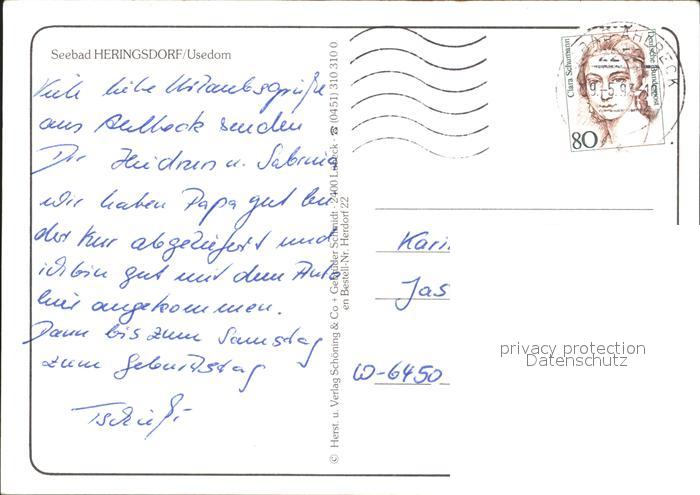 Seebad HERINGSDORF/Usedom
Viele liebe Urlaubsgrüße
aus Ahlbeck senden
Dir Heidrun u. Sabrina
wir haben Papa gut bei
der Kur abgeliefert und
ich bin gut mit dem Auto
hier angekommen.
Dann bis zum Samstag
zum Geburtstag
Tschüß
© Herst. u. Verlag Schöning & Co + Gebrüder Schmidt · 2400 Lübeck · ☎ (0451) 310 310 0
en Bestell-Nr. Herdorf 22
Clara Schumann
Deutsche Bundespost
80
AHLBECK
Kari
Jas
W-6450
privacy protection
Datenschutz